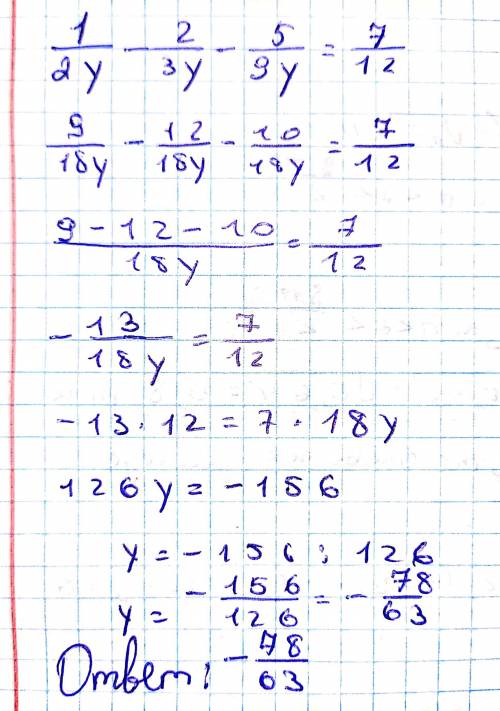 1/2y - 2/3y - 5/9y = 7/12
9/18y - 12/18y - 10/18y = 7/12
9 - 12 - 10/18y = 7/12
- 13/18y = 7/12
-13 · 12 = 7 · 18y
126y = -156
y = - 156 : 126
y = - 156/126 = - 78/63
Ответ: - 78/63